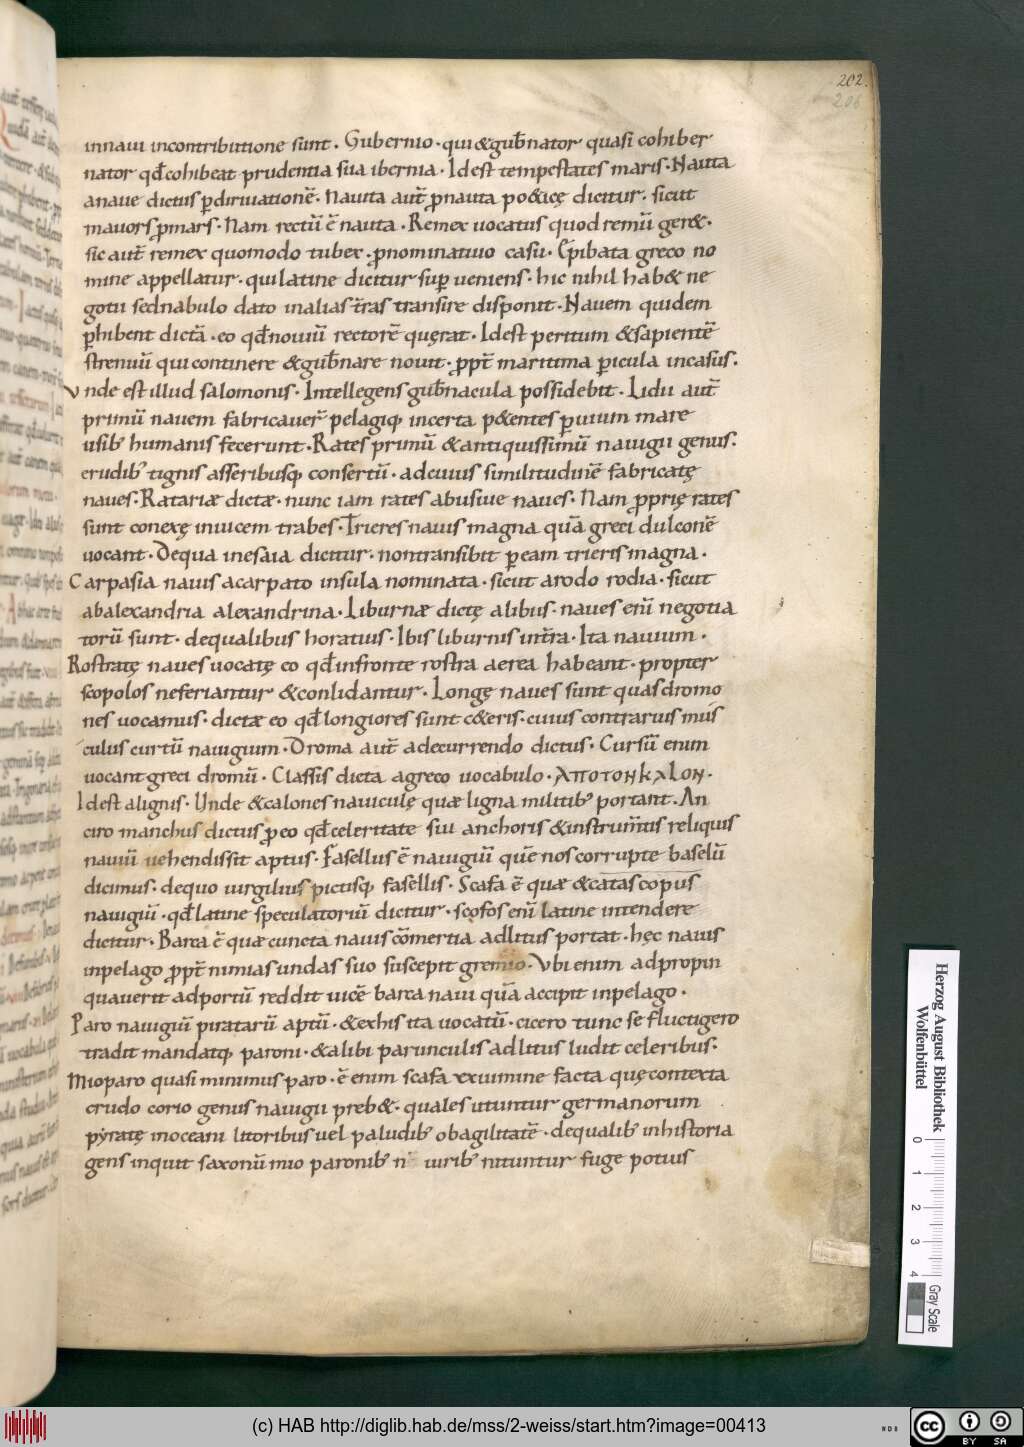 202.
206
innaui incontributione sunt. Gubernio. qui &gub̄nator quasi cohiber
nator qđ cohibeat prudentia sua ibernia. Idest tempestates maris. Nauta
anaue dictus p̱diriuationē. Nauta aut̄ ꝓnauta po&icę dicitur. sicut
mauors ꝓmars. Nam rectū ē nauta. Remex uocatus quod remū ger&.
sic aut̄ remex quomodo tubex. ꝓnominatiuo casu. Epibata greco no
mine appellatur. qui latine dicitur suꝑ ueniens. hic nihil hab& ne
gotii sed nabulo dato inalias t̄ras transire disponit. Nauem quidem
ꝑhibent dictā. eo qđ nouiū rectorē quęrat. Idest peritum & sapientē
strenuū qui continere & gub̄nare nouit. ꝓpt̄ maritima ꝑicula incasus.
Vnde est illud salomonis. Intellegens gub̄nacula possidebit. Lidii aut̄
primū nauem fabricauer̄ pelagiq; incerta p&entes ꝑuium mare
usib; humanis fecerunt. Rates primū & antiquissimū nauigii genus.
erudib; tignis asseribusq; consertū. adcuius similitudinē fabricatę
naues. Ratariæ dictæ. nunc iam rates abusiue naues. Nam ꝓprię rates
sunt conexę inuicem trabes. Trieres nauis magna quā greci dulconē
uocant. Dequa inesaia dicitur. nontransibit ꝑeam trieris magna.
Carpasia nauis acarpato insula nominata. sicut arodo rodia. sicut
abalexandria alexandrina. Liburnæ dictę alibus. naues enī negotia
torū sunt. dequalibus horatius. Ibis liburnis int̄ra. Ita nauium.
Rostratę naues uocatę eo qđ infronte rostra aerea habeant. propter
scopolos ne feriantur & conlidantur. Longę naues sunt quas dromo
nes uocamus. dictæ eo qđ longiores sunt c&eris. cuius contrarius mus
culus curtū nauigium. Droma aut̄ adecurrendo dictus. Cursū enim
uocant greci dromū. Classis dicta agreco uocabulo. ΑΠΟΤΟΝΚΑLΟΝ.
Idest alignis. Unde & calones nauiculę quæ ligna militib; portant. An
ciro manchus dictus ꝓeo qđ celeritate siu anchoris & instrum̄tis reliquis
nauiū uehendis sit aptus. Fasellus ē nauigiū quē nos corrupte baselū
dicimus. dequo uirgilius pictisq; fasellis. Scafa ē quæ & catascopus
nauigiū. qđ latine speculatoriū dicitur. scofos enī latine intendere
dicitur. Barca ē quæ cuncta nauis cōmertia adlitus portat. hęc nauis
inpelago ꝓpt̄ nimias undas suo suscepit gremio. Vbi enim adpropin
quauerit adportū reddit uicē barca naui quā accipit inpelago.
Paro nauigiū piratarū aptū. & exhis ita uocatū. cicero tunc se fluctigero
tradit mandatq; paroni. & alibi parunculis adlitus ludit celeribus.
Mioparo quasi minimus paro. ē enim scafa exuimine facta quę contexta
crudo corio genus nauigii preb&. quales utuntur germanorum
pyratę inoceani litoribus uel paludib; obagilitatē. dequalib; inhistoria
gens inquit saxonū mio paronib; n̄ uirib; nituntur fuge potius
Herzog August Bibliothek
Wolfenbüttel
0 1 2 3 4
Gray Scale
(c) HAB http://diglib.hab.de/mss/2-weiss/start.htm?image=00413
cc BY SA